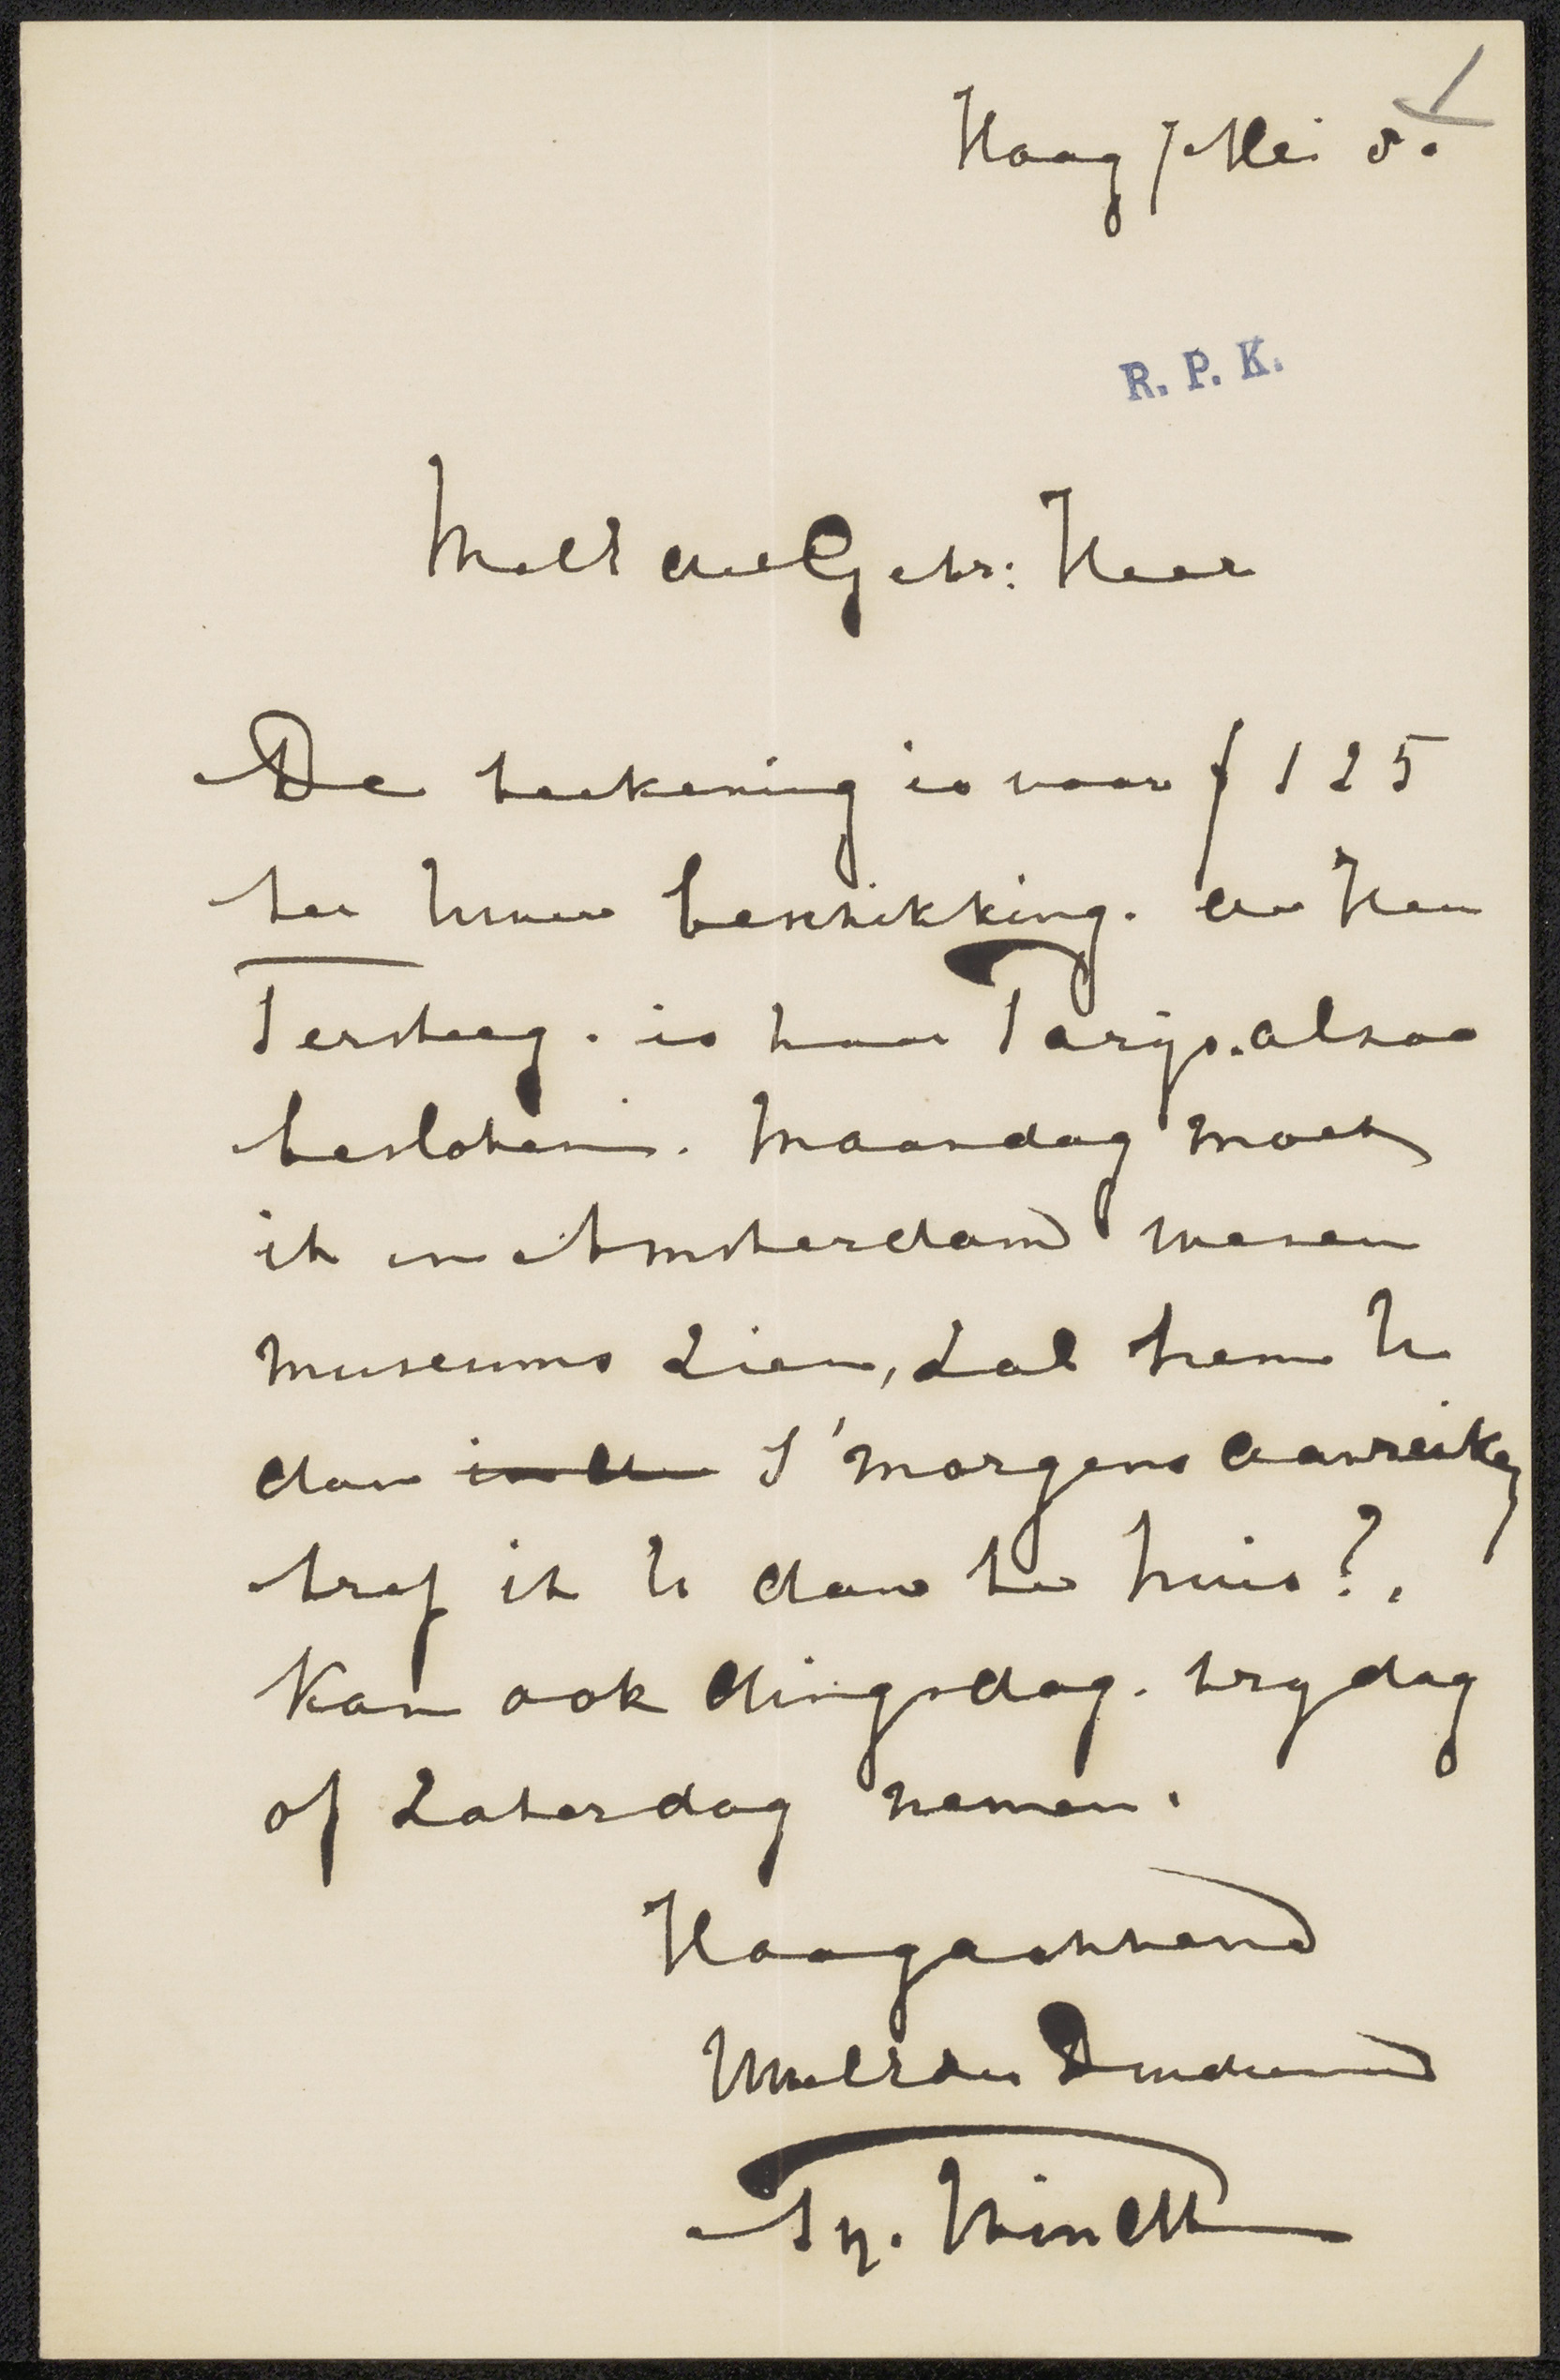 Haag / Mei 8.
R. P. K.
WelEdelGestr: Heer
De teekening is voor f 125
ter Uwer beschikking. de Heer
Tersteeg. is naar Parijs. alzoo
besloten. Maandag moet
ik in Amsterdam wezen
museums zien, zal hem U
dan s'morgens aanreiken
tref ik U dan te huis?.
Kan ook dingsdag. vrydag
of Zaterdag nemen.
Hoogachtend
UwelEdu Dwdienend